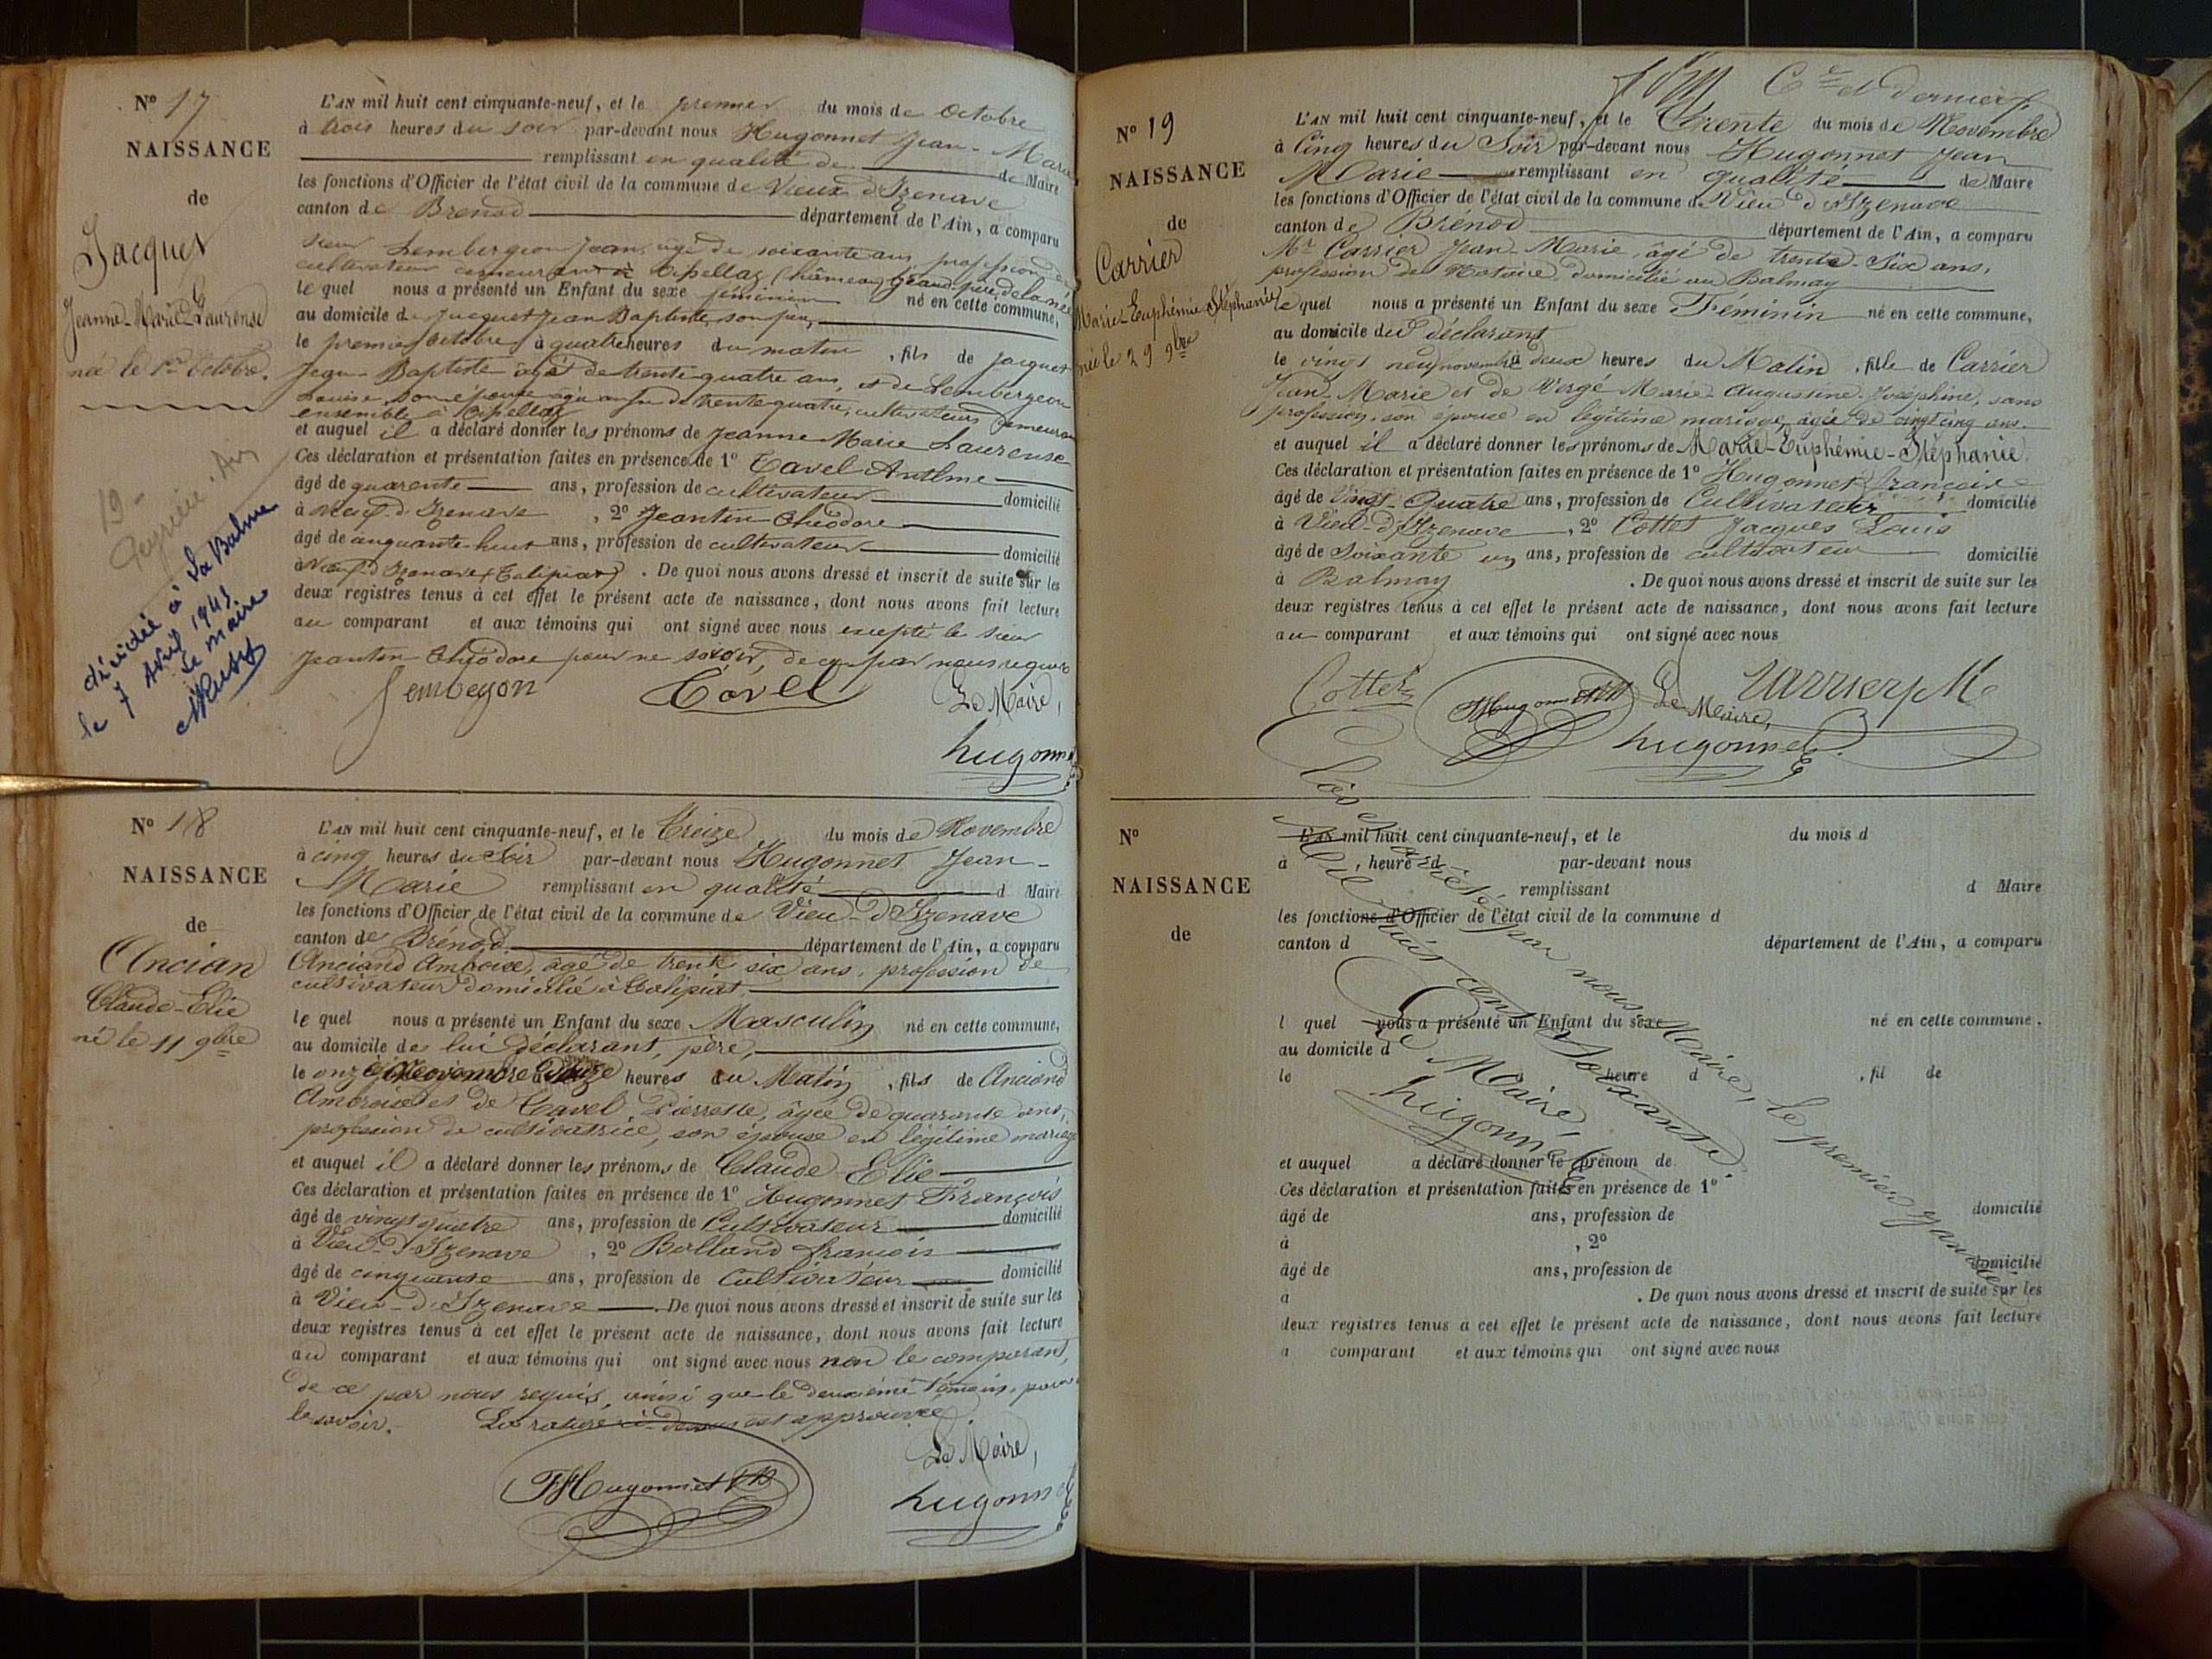 N° 17
NAISSANCE
de
Jacquet
Jeanne-Marie-Laurense
née le 1er Octobre.
décédée à La Balme
le 7 Avril 1943
Le maire
L'AN mil huit cent cinquante-neuf, et le premier du mois de Octobre
à trois heures du soir par-devant nous Hugonnet Jean-Marie
remplissant en qualité de de Maire
les fonctions d'Officier de l'état civil de la commune de Vieux d'Izenave
canton de Brenod département de l'Ain, a comparu
sieur Jean, agé de soixante ans, profession de
cultivateur (hâmeau) grand-père de la née
le quel nous a présenté un Enfant du sexe féminin né en cette commune,
au domicile de Jacquet Jean Baptiste, son père,
le premier Octobre à quatre heures du matin, fils de Jacquet
Jean-Baptiste agé de trente-quatre ans, et de
Louise, son épouse agée aussi de trente quatre, cultivateurs demeurant
ensemble à
et auquel il a déclaré donner les prénoms de Jeanne Marie Laurense
Ces déclaration et présentation faites en présence de 1° Cavel Antlme
âgé de quarente ans, profession de cultivateur domicilié
à Vieux d'Izenave, 2° Jeantin Théodore
âgé de cinquante-huit ans, profession de cultivateur domicilié
à Vieux d'Izenave. De quoi nous avons dressé et inscrit de suite sur les
deux registres tenus à cet effet le présent acte de naissance, dont nous avons fait lecture
au comparant et aux témoins qui ont signé avec nous excepté le sieur
Jeantin Théodore pour ne savoir, de ce par nous requis
Cavel Le Maire,
hugonnet
N° 18
NAISSANCE
de
Ancian
Claude-Elie
né le 11 9bre
L'AN mil huit cent cinquante-neuf, et le Treize du mois de Novembre
à cinq heures du Soir par-devant nous Hugonnet Jean-
Marie remplissant en qualité d Maire
les fonctions d'Officier de l'état civil de la commune de Vieu-d'Izenave
canton de Brénod département de l'Ain, a comparu
Anciand Amboise, âgé de trente six ans, profession de
cultivateur domicilié à Talipiat
le quel nous a présenté un Enfant du sexe Masculin né en cette commune,
au domicile de lui déclarant, père,
le onze Novembre à heures du Matin, fils de Anciand
Ambroise et de Cavel Pierrette, âgée de quarante ans,
profession de cultivatrice, son épouse en légitime mariage
et auquel il a déclaré donner les prénoms de Claude-Elie
Ces déclaration et présentation faites en présence de 1° Hugonnet François
âgé de vingt quatre ans, profession de Cultivateur domicilié
à Vieu-d'Izenave, 2° Bolland françois
âgé de cinquante ans, profession de Cultivateur domicilié
à Vieu-d'Izenave. De quoi nous avons dressé et inscrit de suite sur les
deux registres tenus à cet effet le présent acte de naissance, dont nous avons fait lecture
au comparant et aux témoins qui ont signé avec nous non le comparant,
de ce par nous requis, ainsi que le deuxième témoin, pour
le savoir. La rature ci-dessus est approuvée
Le Maire,
FHugonnet hugonnet
Cte et dernier f.
N° 19
NAISSANCE
de
Carrier
Marie-Euphémie-Stéphanie
née le 29 9bre
L'AN mil huit cent cinquante-neuf, et le Trente du mois de Novembre
à Cinq heures du Soir par-devant nous Hugonnet Jean
Marie remplissant en qualité de Maire
les fonctions d'Officier de l'état civil de la commune de Vieu d'Izenave
canton de Brénod département de l'Ain, a comparu
Mr Carrier Jean-Marie, âgé de trente-Six ans,
profession de Notaire domicilié au Balmay
le quel nous a présenté un Enfant du sexe Féminin né en cette commune,
au domicile du déclarant
le vingt neuf novembre à deux heures du Matin, fille de Carrier
Jean-Marie et de Vergé Marie-Augustine-Joséphine, sans
profession, son épouse en légitime mariage, âgée de vingt cinq ans.
et auquel il a déclaré donner les prénoms de Marie-Euphémie-Stéphanie.
Ces déclaration et présentation faites en présence de 1° Hugonnet françois
âgé de Vingt-Quatre ans, profession de Cultivateur domicilié
à Vieu-d'Izenave, 2° Cottet Jacques Louis
âgé de Soixante un ans, profession de cultivateur domicilié
à Balmay. De quoi nous avons dressé et inscrit de suite sur les
deux registres tenus à cet effet le présent acte de naissance, dont nous avons fait lecture
au comparant et aux témoins qui ont signé avec nous
Cottet FHugonnet Le Maire, Carrier JM
hugonnet
N°
NAISSANCE
de
L'AN mil huit cent cinquante-neuf, et le du mois d
à , heure d par-devant nous
remplissant d Maire
les fonctions d'Officier de l'état civil de la commune d
canton d département de l'Ain, a comparu
l quel nous a présenté un Enfant du sexe né en cette commune.
au domicile d
le heure d , fil de
et auquel a déclaré donner le prénom de
Ces déclaration et présentation faites en présence de 1°
âgé de ans, profession de domicilié
à , 2°
âgé de ans, profession de domicilié
a . De quoi nous avons dressé et inscrit de suite sur les
deux registres tenus à cet effet le présent acte de naissance, dont nous avons fait lecture
a comparant et aux témoins qui ont signé avec nous
Clos et arrêté par nous Maire, le premier janvier
mil huit cent soixante.
Le Maire,
hugonnet